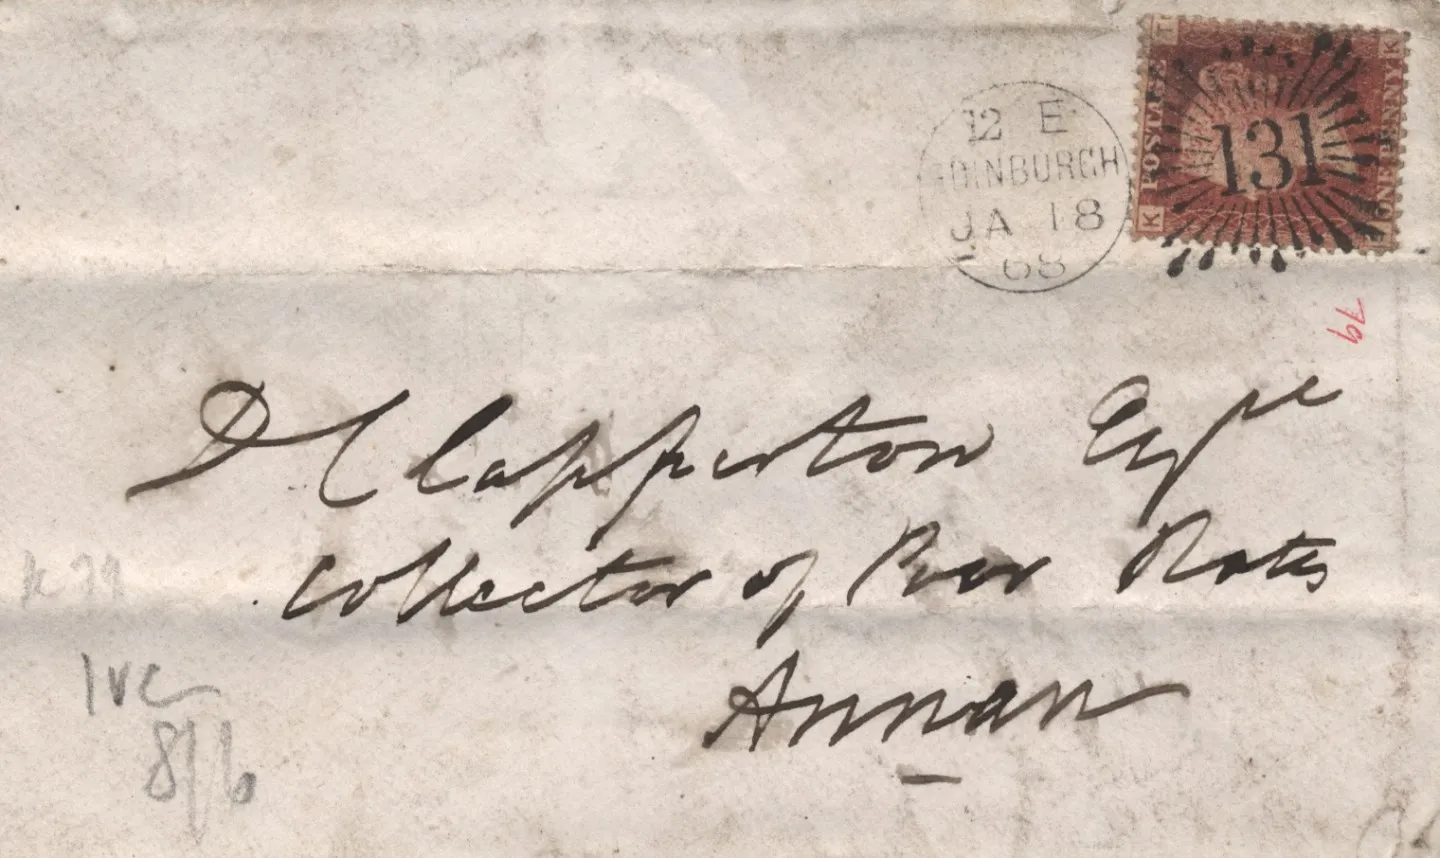 12 E
EDINBURGH
JA 18
68
POSTAGE
131
ONE PENNY
K
K
79
D Clapperton Esqre
Collector of Poor Rates
Annan
8/6